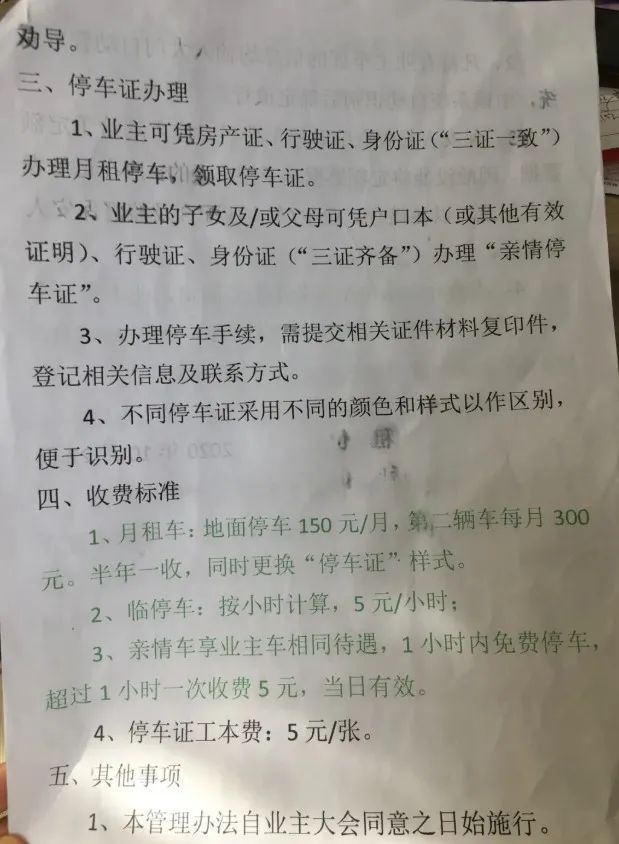 劝导。
三、停车证办理
1、业主可凭房产证、行驶证、身份证(“三证一致”)
办理月租停车，领取停车证。
2、业主的子女及/或父母可凭户口本（或其他有效
证明）、行驶证、身份证（“三证齐备”）办理“亲情停
车证”。
3、办理停车手续，需提交相关证件材料复印件，
登记相关信息及联系方式。
4、不同停车证采用不同的颜色和样式以作区别，
便于识别。
四、收费标准
1、月租车：地面停车 150 元/月，第二辆车每月 300
元。半年一收，同时更换“停车证”样式。
2、临停车：按小时计算，5 元/小时；
3、亲情车享业主车相同待遇，1 小时内免费停车，
超过 1 小时一次收费 5 元，当日有效。
4、停车证工本费：5 元/张。
五、其他事项
1、本管理办法自业主大会同意之日始施行。